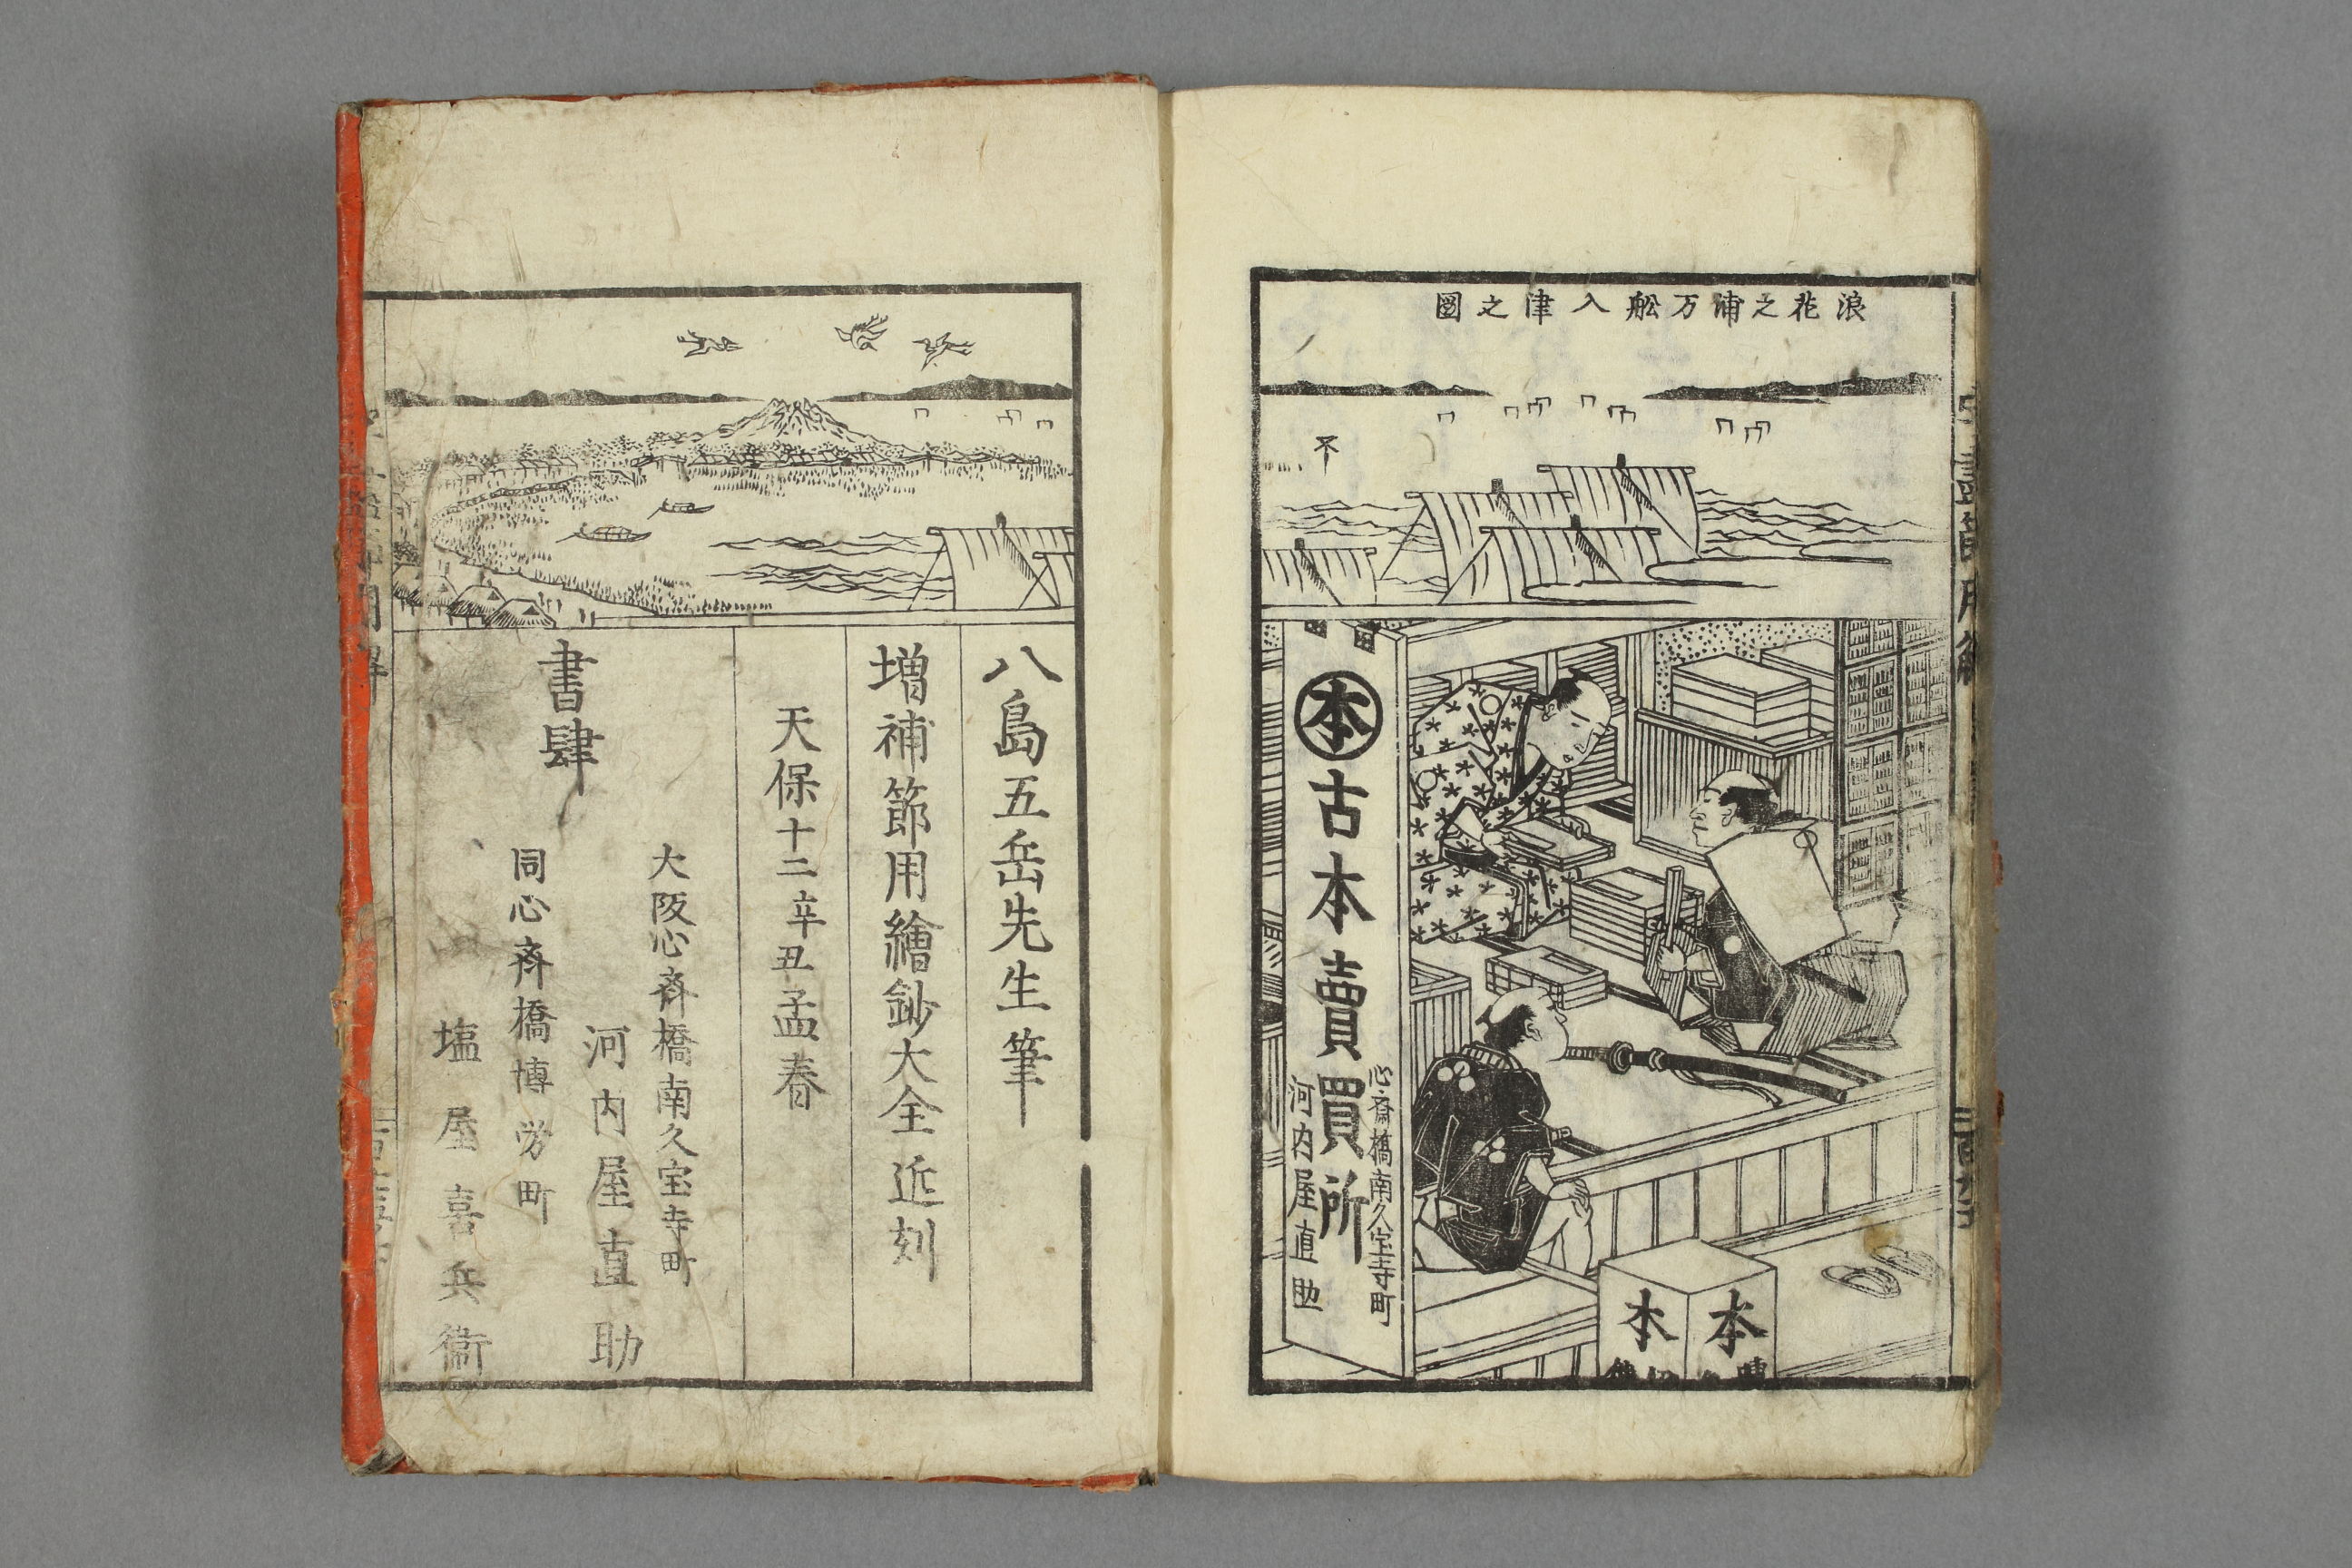 浪花之浦万舩入津之圖
心斎橋南久宝寺町
本
古本賣買所
河内屋直助
本
本
八島五岳先生筆
増補節用繪鈔大全近刻
天保十二辛丑孟春
書肆
大阪心斉橋南久宝寺町
河内屋直助
同心斉橋博労町
塩屋喜兵衞